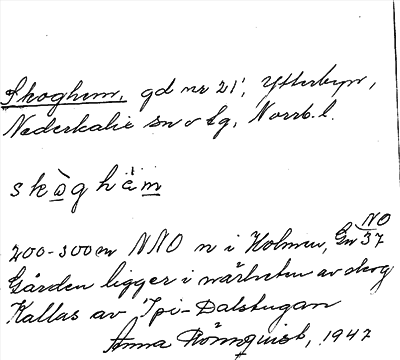 Skoghem, gd nr 21', Ytterbyn,
Nederkalix sn o tg, Norrb.l.
skòghäm
200-300m NNO n i Holmen, Gn NO 37
Gården ligger i närheten av skog
Kallas av Ipi-Dalstugan
Anna Rönnquist, 1947